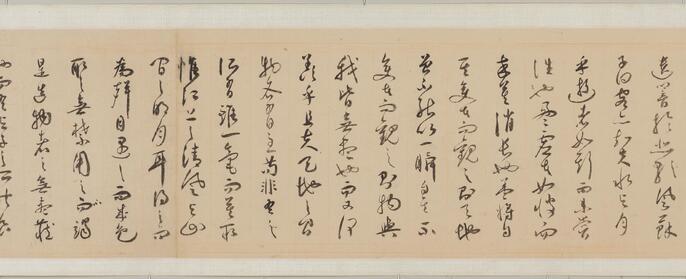 遺響於悲風蘇
子曰客亦知夫水與月
乎逝者如斯而未嘗
往也盈虛者如彼而
卒莫消長也蓋將自
其變者而觀之則天地
曾不能以一瞬自其不
變者而觀之則物與
我皆無盡也而又何
羨乎且夫天地之間
物各有主苟非吾之
所有雖一毫而莫取
惟江上之清風與山
間之明月耳得之而
為聲目遇之而成色
取之無禁用之不竭
是造物者之無盡藏
也而吾與子之所